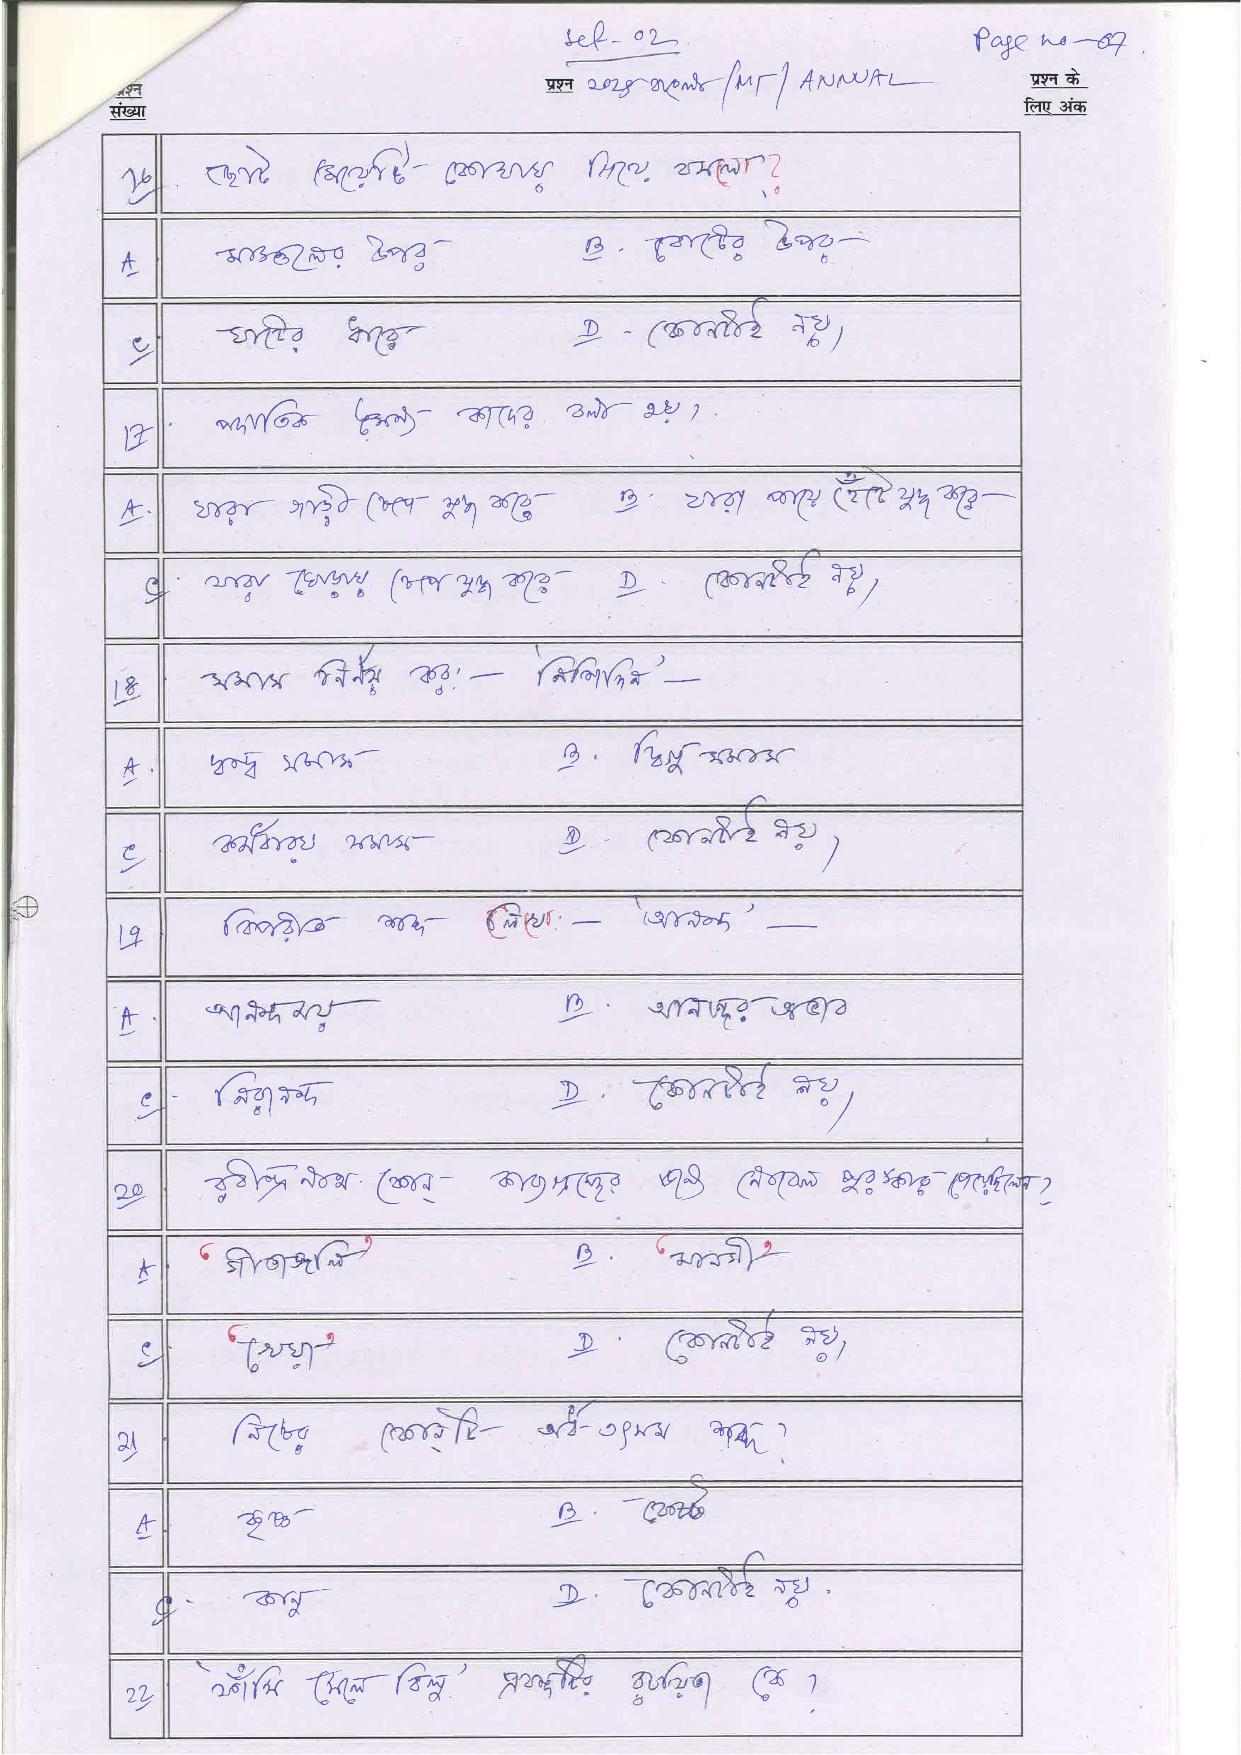 Set - 02
Page no - 07
प्रश्न संख्या
प्रश्न ২০২৪ বাংলা / (MT) / ANNUAL
प्रश्न के लिए अंक
16. ছোট মেয়েটি কোথায় গিয়ে বসলো?
A মাস্তুলের উপর B. বোটের উপর
C ঘাটের ধারে D - কোনটাই নয়,
17 পদাতিক সৈন্য কাদের বলা হয়?
A. যারা গাড়ী চেপে যুদ্ধ করে B. যারা পায়ে হেঁটে যুদ্ধ করে
C. যারা ঘোড়ায় চেপে যুদ্ধ করে D. কোনটাই নয়,
18 সমাস নির্ণয় কর:— 'নিশিদিন' —
A. দ্বন্দ্ব সমাস B. দ্বিগু সমাস
C কর্মধারয় সমাস D. কোনটাই নয়,
19 বিপরীত শব্দ লিখো:— 'আনন্দ' —
A. আনন্দময় B. আনন্দের অভাব
C. নিরানন্দ D. কোনটাই নয়,
20 রবীন্দ্রনাথ কোন্ কাব্যগ্রন্থের জন্য নোবেল পুরস্কার পেয়েছিলেন?
A 'গীতাঞ্জলি' B. 'মানসী'
C 'খেয়া' D. কোনটাই নয়,
21 নিচের কোন্‌টি অর্ধ-তৎসম শব্দ?
A কৃষ্ণ B. কেষ্ট
C. কানু D. কোনটাই নয়.
22 'ফাঁসি গেলে বিলু' প্রবন্ধটির রচয়িতা কে?